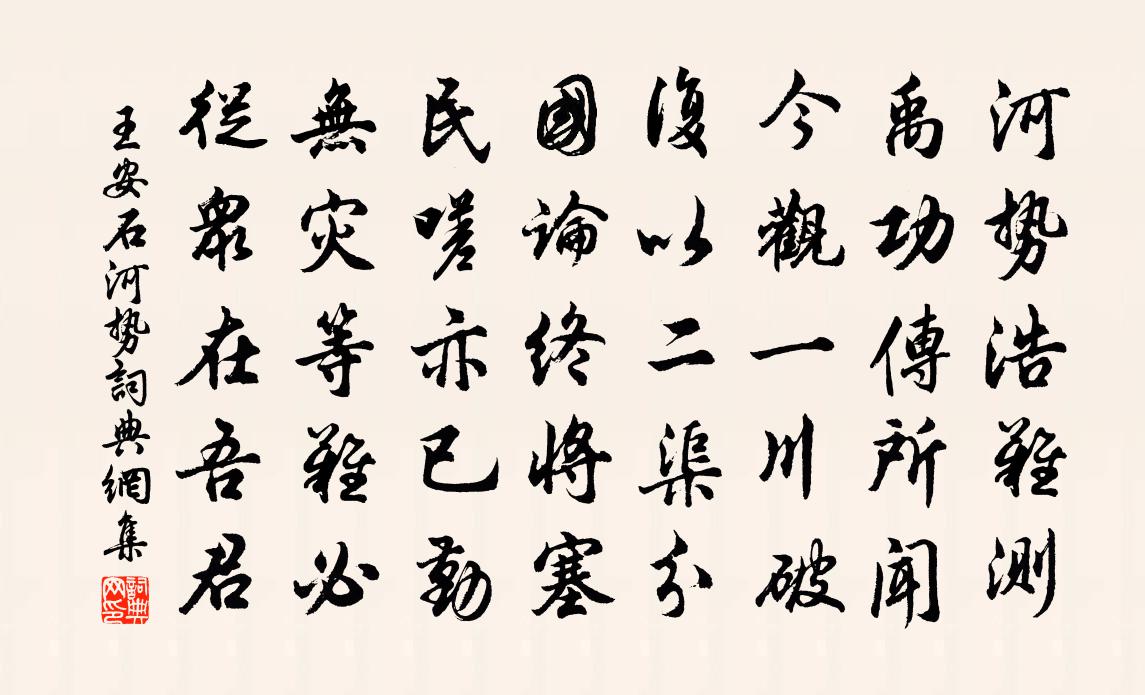 河勢浩難測
禹功傳所聞
今觀一川破
復以二渠分
國論終將塞
民嗟亦已勤
無災等難必
從眾在吾君
王安石河勢詞典網集
詞典
网印